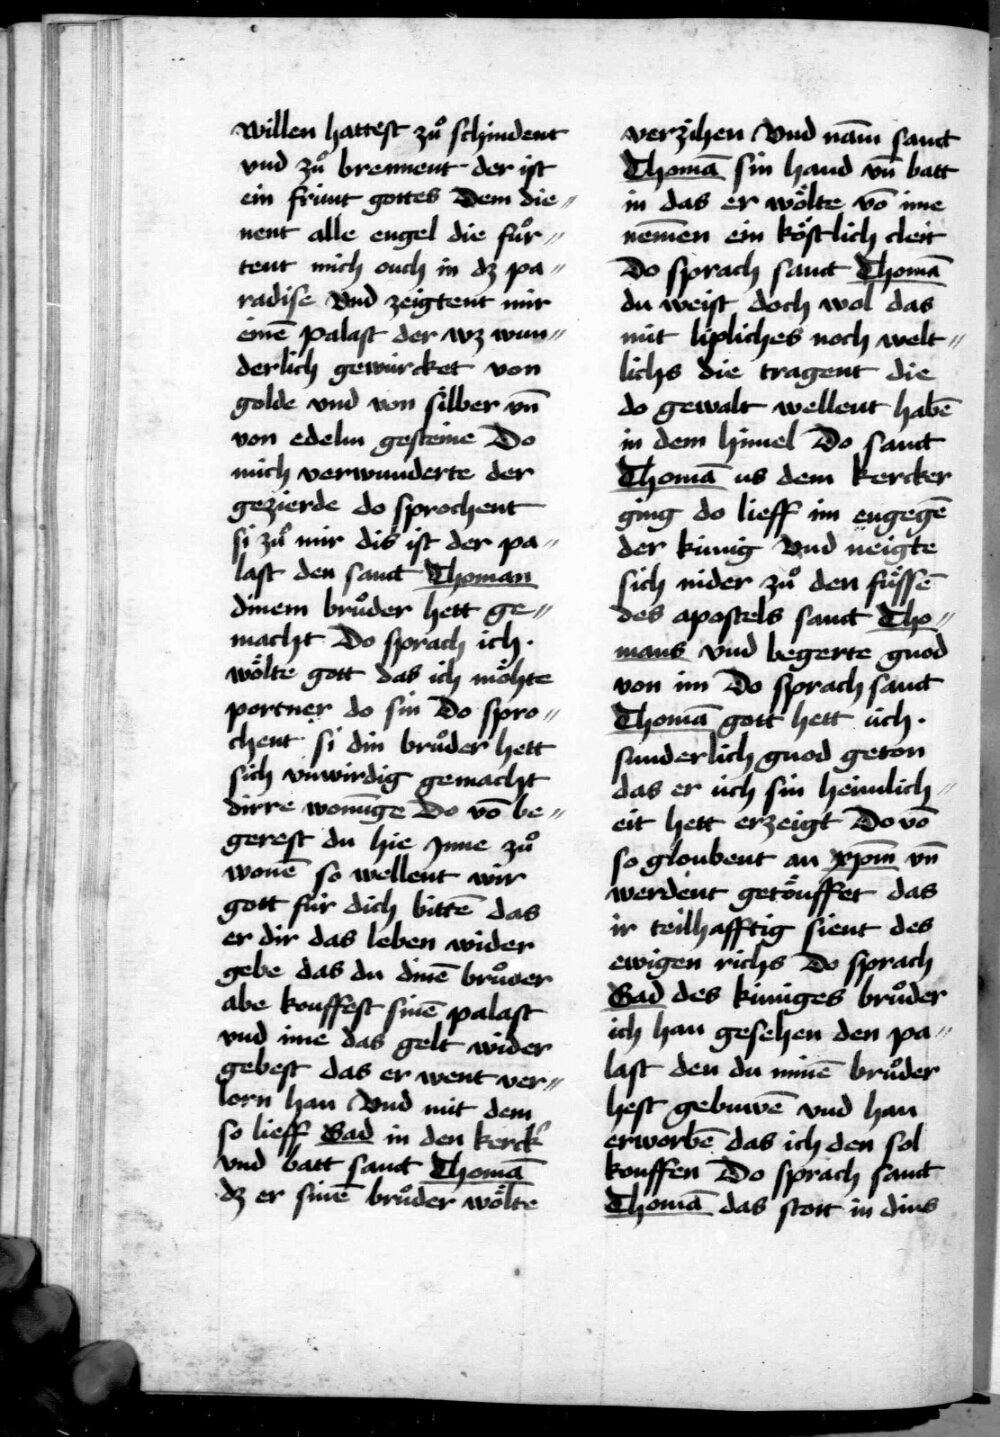 willen hattest zuͦ schindent
vnd zuͦ brennent der ist
ein frúnt gottes Dem die〃
nent alle engel die fuͦr〃
tent mich ouch in dz pa〃
radise Vnd zeigtent mir
einē palast der wz wun〃
derlich gewúrcket von
golde vnd von silber vn̄
von edelm gesteine Do
mich verwunderte der
gezierde do sprochent
si zuͦ mir dis ist der pa〃
last den sanct Thoman
dinem bruͦder hett ge〃
macht Do sprach ich ·
woͤlte gott das ich moͤhte
portner do sin Do spro〃
chent si din bruͦder hett
sich vnwirdig gemacht
dirre wonūge Do vō be〃
gerest du hie Jnne zuͦ
wonē so wellent wir
gott fúr dich bittē das
er dir das leben wider
gebe das du dinē bruͦder
abe kouffest sinē palast
vnd ime das gelt wider
gebest das er went ver〃
lorn han Vnd mit dem
so lieff Gad in den kerck͛
vnd batt sanct Thomā
dz er sinē bruͦder woͤlte
verzihen Vnd nam sanct
Thomā sin hand vn̄ batt
in das er woͤlte vō ime
nēmen ein koͤstlich cleit
Do sprach sanct Thomā
du weist doch wol das
nút lipliches noch welt〃
lichs die tragent die
do gewalt wellent habē
in dem himel Do sanct
Thomā us dem kercker
ging do lieff im engegē
der kúnig Vnd neigte
sich nider zuͦ den fuͤssē
des apostels sanct Tho〃
mans vnd begerte gnod
von im Do sprach sanct
Thomā gott hett úch ·
sunderlich gnod geton
das er úch sin heimlich〃
eit hett erzeigt Do vō
so gloubent an xp̄m vn̄
werdent getoͤuffet das
ir teilhafftig sient des
ewigen richs Do sprach
Gad des kúniges bruͦder
ich han gesehen den pa〃
last den du minē bruͦder
hest gebuwē vnd han
erworbē das ich den sol
kouffen Do sprach sanct
Thomā das stott in dins